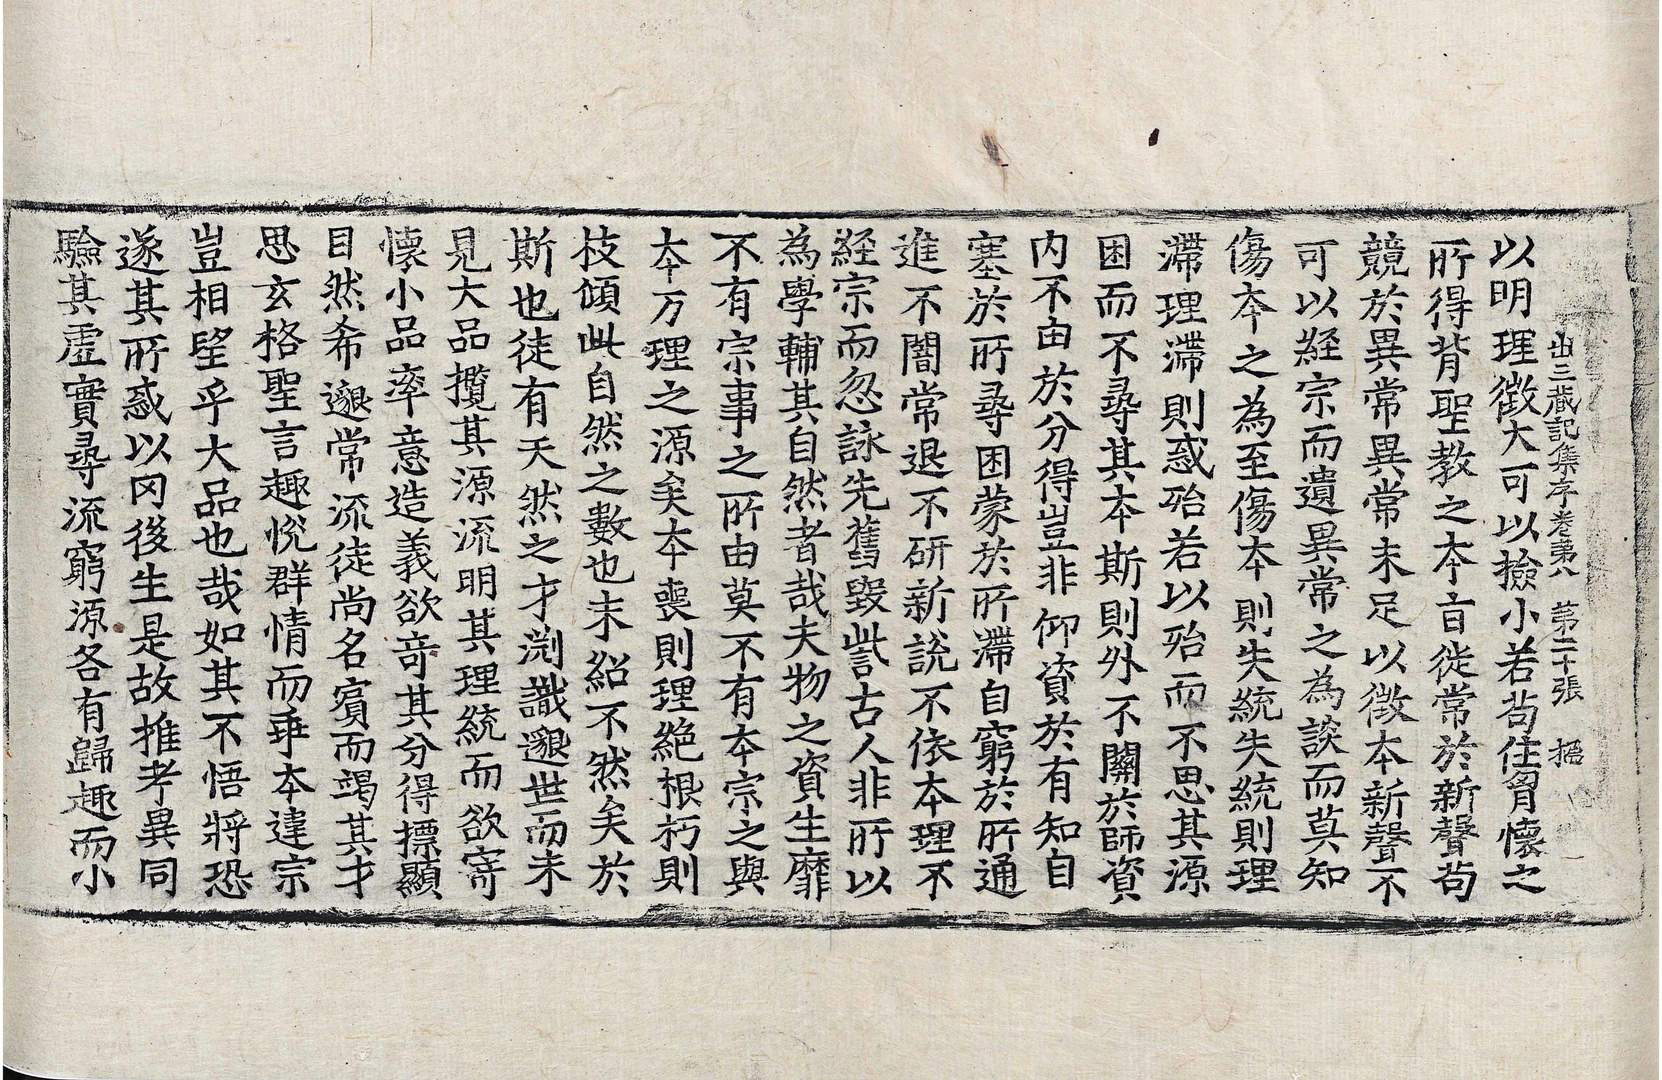 出三藏記集序卷第八　第二十張　搵
以明理徵大可以撿小若苟任胷懷之
所得背聖教之本旨徒常於新聲苟
競於異常異常未足以徵本新聲不
可以經宗而遺異常之為談而莫知
傷本之為至傷本則失統失統則理
滯理滯則惑殆若以殆而不思其源
困而不尋其本斯則外不關於師資
內不由於分得豈非仰資於有知自
塞於所尋困蒙於所滯自窮於所通
進不闇常退不研新說不依本理不
經宗而忽詠先舊毀訾古人非所以
為學輔其自然者哉夫物之資生靡
不有宗事之所由莫不有本宗之與
本万理之源矣本喪則理絕根朽則
枝傾此自然之數也未紹不然矣於
斯也徒有天然之才渕識邈世而未
見大品攬其源流明其理統而欲寄
懷小品率意造義欲奇其分得摽顯
目然希邈常流徒尚名賓而竭其才
思玄格聖言趣悅群情而乖本違宗
豈相望乎大品也哉如其不悟將恐
遂其所惑以罔後生是故推考異同
驗其虛實尋流窮源各有歸趣而小